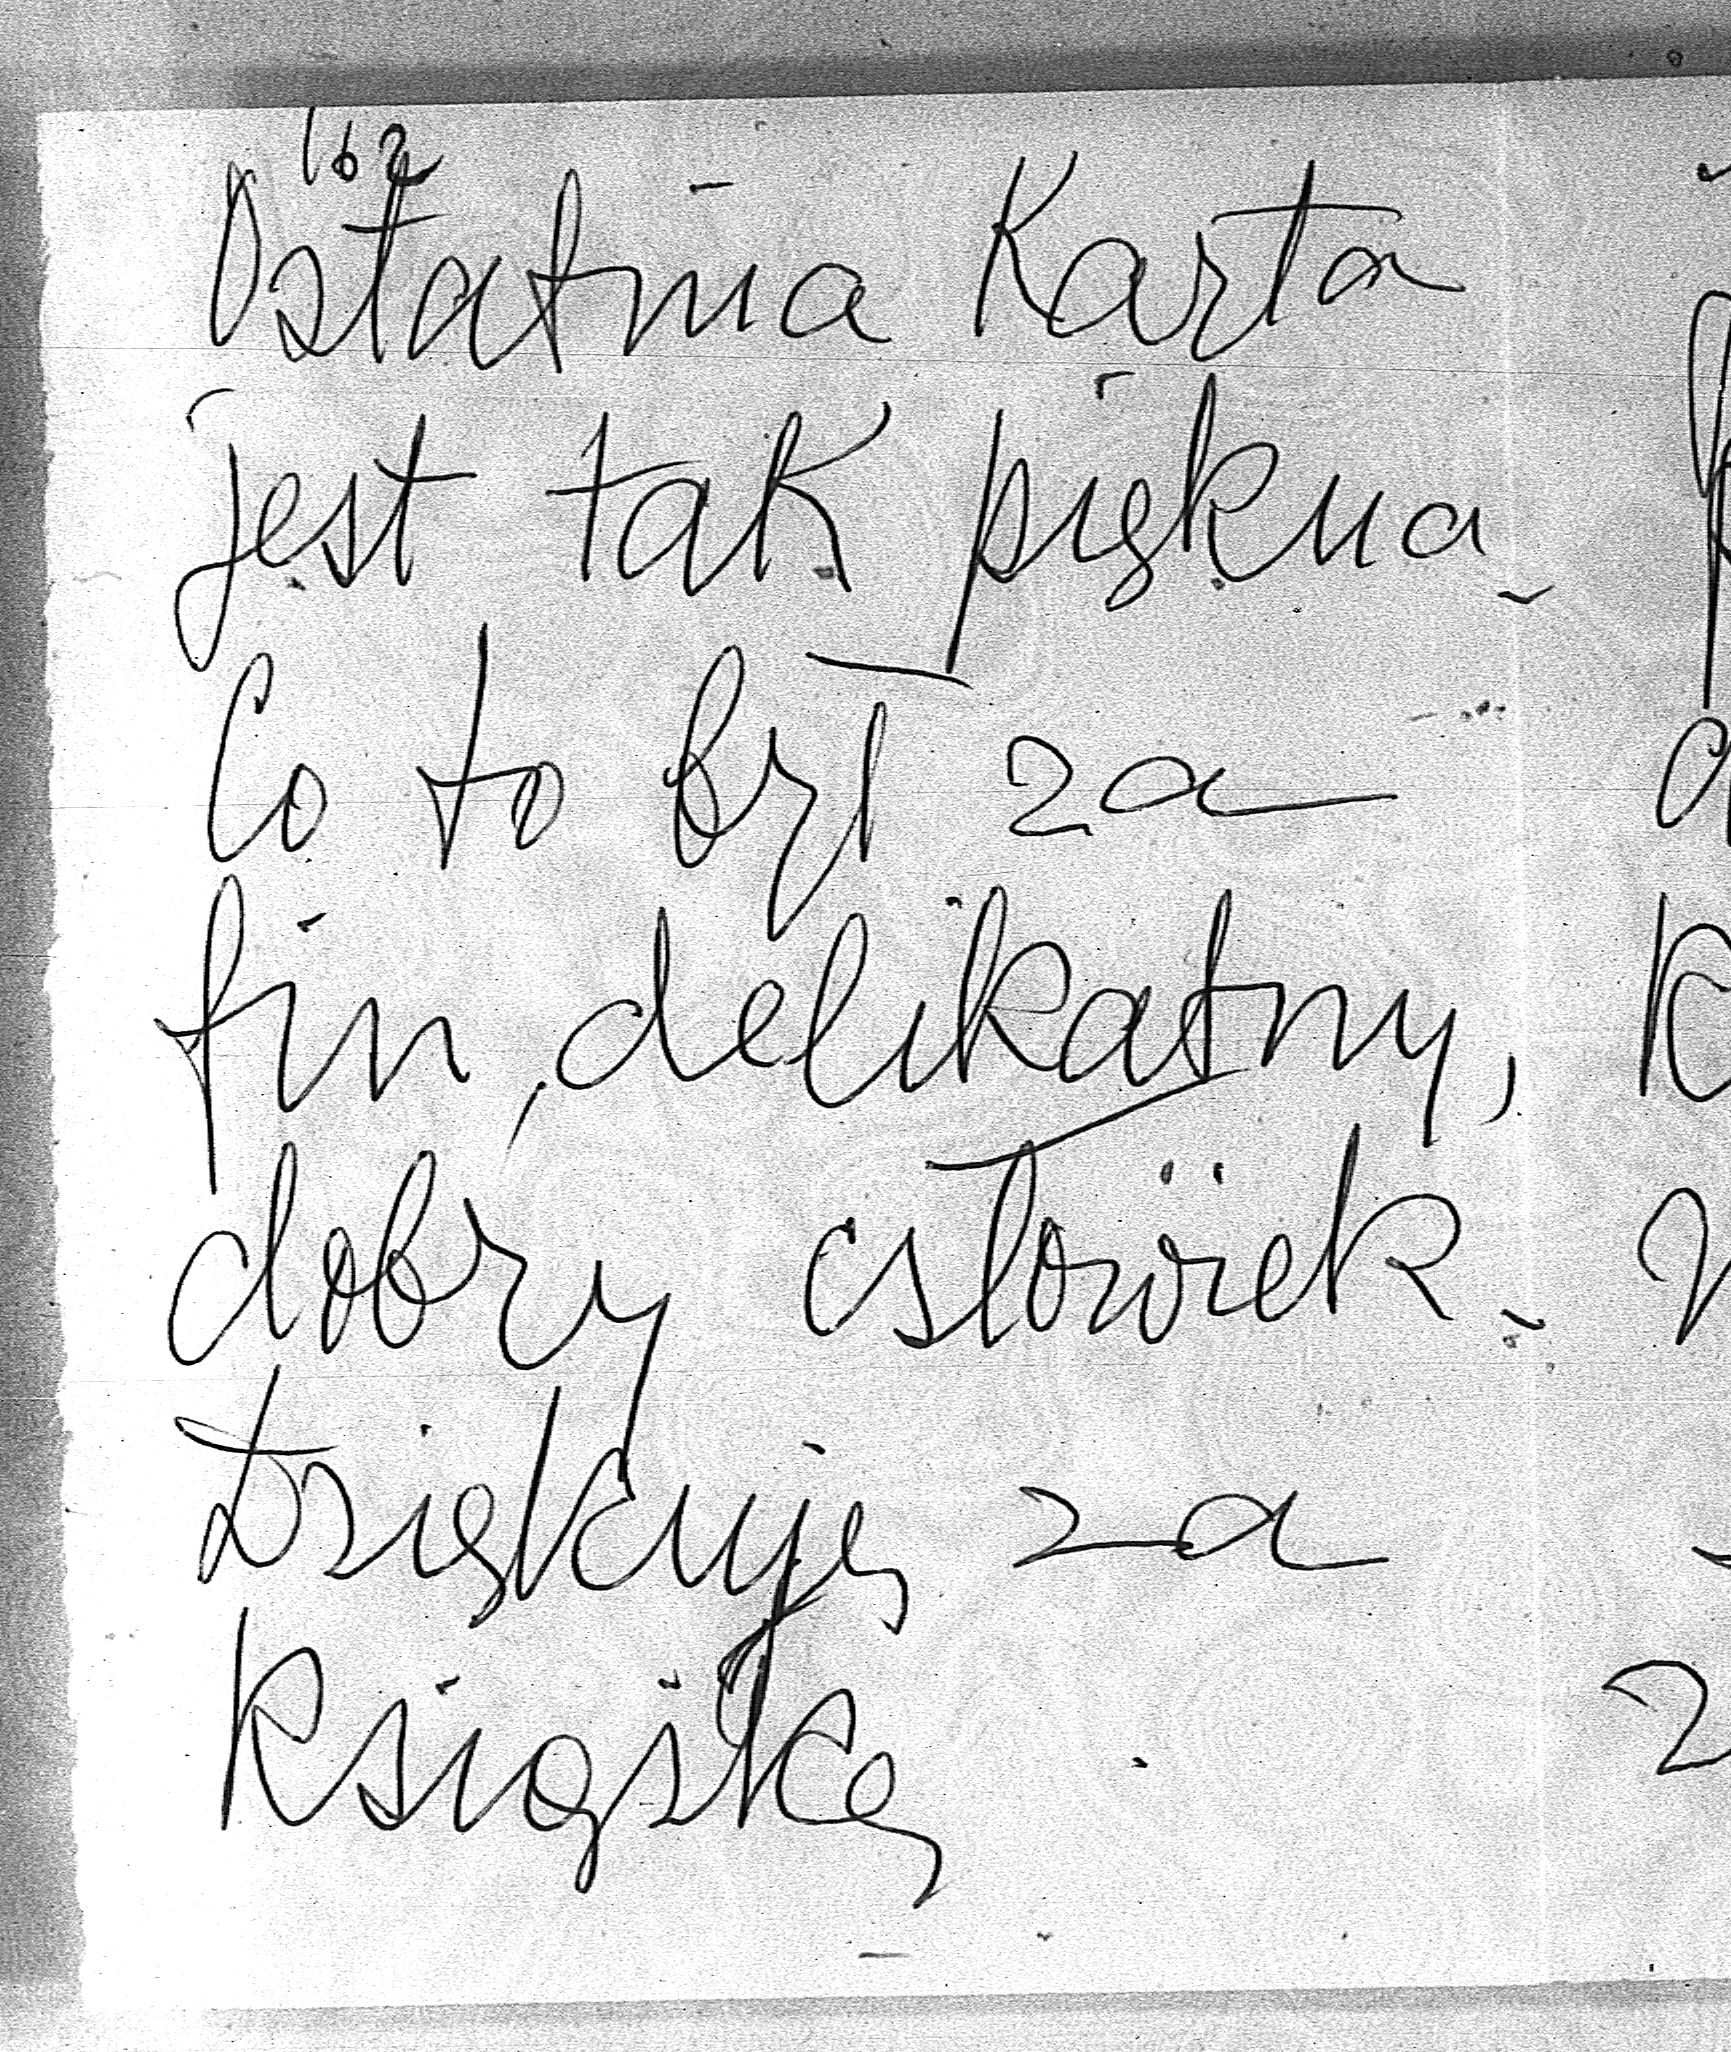 162
Ostatnia Karta
jest tak piękna.
Co to był za
fin, delikatny,
dobry człowiek.
Dziękuję za
Książkę